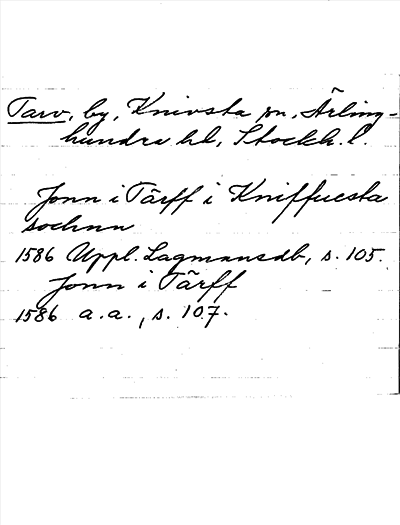 Tarv, by, Knivsta sn, Ärling-
hundra hd, Stockh. l.
Jonn i Tärff i Kniffuesta
sochnn
1586 Uppl. Lagmansdb, s. 105.
Jonn i Tärff
1586 a.a., s. 107.